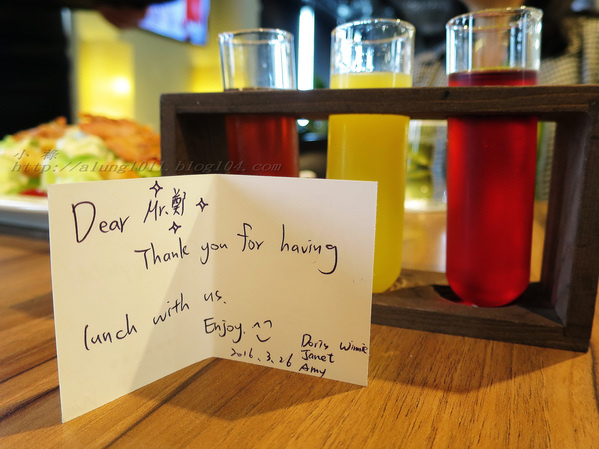 小蓉
http://alung1011.blog104.com
Dear Mr.鄭
Thank you for having
lunch with us.
Enjoy. ^^
2016.3.26
Doris Winnie
Janet
Amy